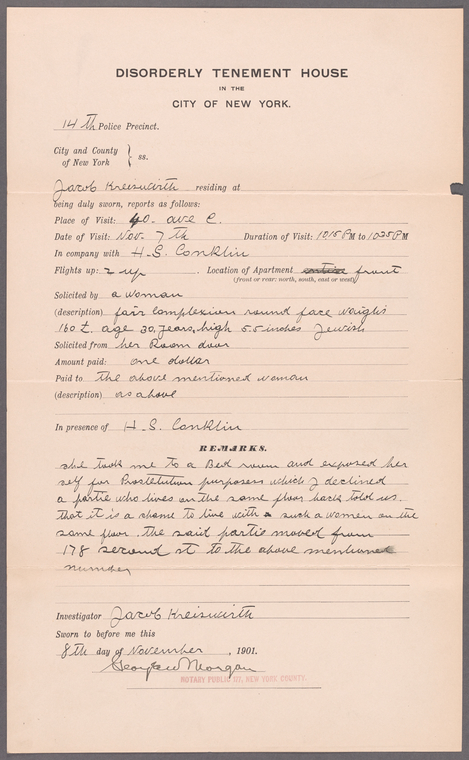 DISORDERLY TENEMENT HOUSE
IN THE
CITY OF NEW YORK.
14th Police Precinct.
City and County
of New York } ss.
Jacob Kreiswirth residing at
being duly sworn, reports as follows:
Place of Visit: 40. ave C.
Date of Visit: Nov. 7th Duration of Visit: 10 15 PM to 10 25 PM
In company with H. S. Conklin
Flights up: 2 up . Location of Apartment front
(front or rear: north, south, east or west)
Solicited by a woman
(description) fair complexion round face weighs
160 £. age 30, years, high 5.5 inches Jewish
Solicited from her Room door
Amount paid: one dollar
Paid to the above mentioned woman
(description) as above
In presence of H. S. Conklin
REMARKS.
she took me to a Bed room and exposed her
self for Prostetution purposers which I declined
a partie who lives on the same floor back told us.
that it is a shame to live with such a women on the
same floor. the said partie moved from
178 second st to the above mentioned
number
Investigator Jacob Kreiswirth
Sworn to before me this
8th day of November , 1901.
George W Morgan
NOTARY PUBLIC NY. NEW YORK COUNTY.